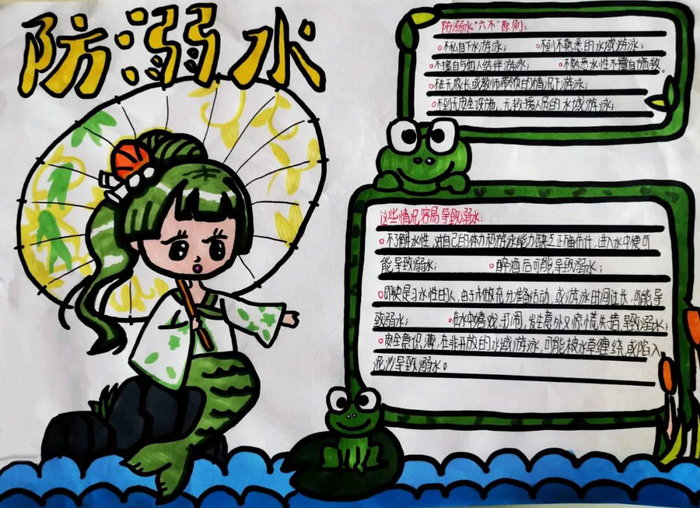 防溺水
防溺水"六不"原则:
不私自下水游泳; 不到不熟悉的水域游泳;
不擅自与他人结伴游泳; 不熟悉水性不擅自施救。
不在无家长或教师带领的情况下游泳;
不到无安全设施、无救援人员的水域游泳;
这些情况容易导致溺水:
不了解水性,对自己的体力和游泳能力缺乏正确估计,进入水中便可
能导致溺水; 醉酒后可能导致溺水;
即使是习水性的人,由于未做充分准备活动,或游泳时间过长,可能导
致溺水; 在水中嬉戏、打闹,发生意外又惊慌失措导致溺水;
安全意识薄,在非开放的水域游泳,可能被水草缠绕,或陷入
泥沙导致溺水。